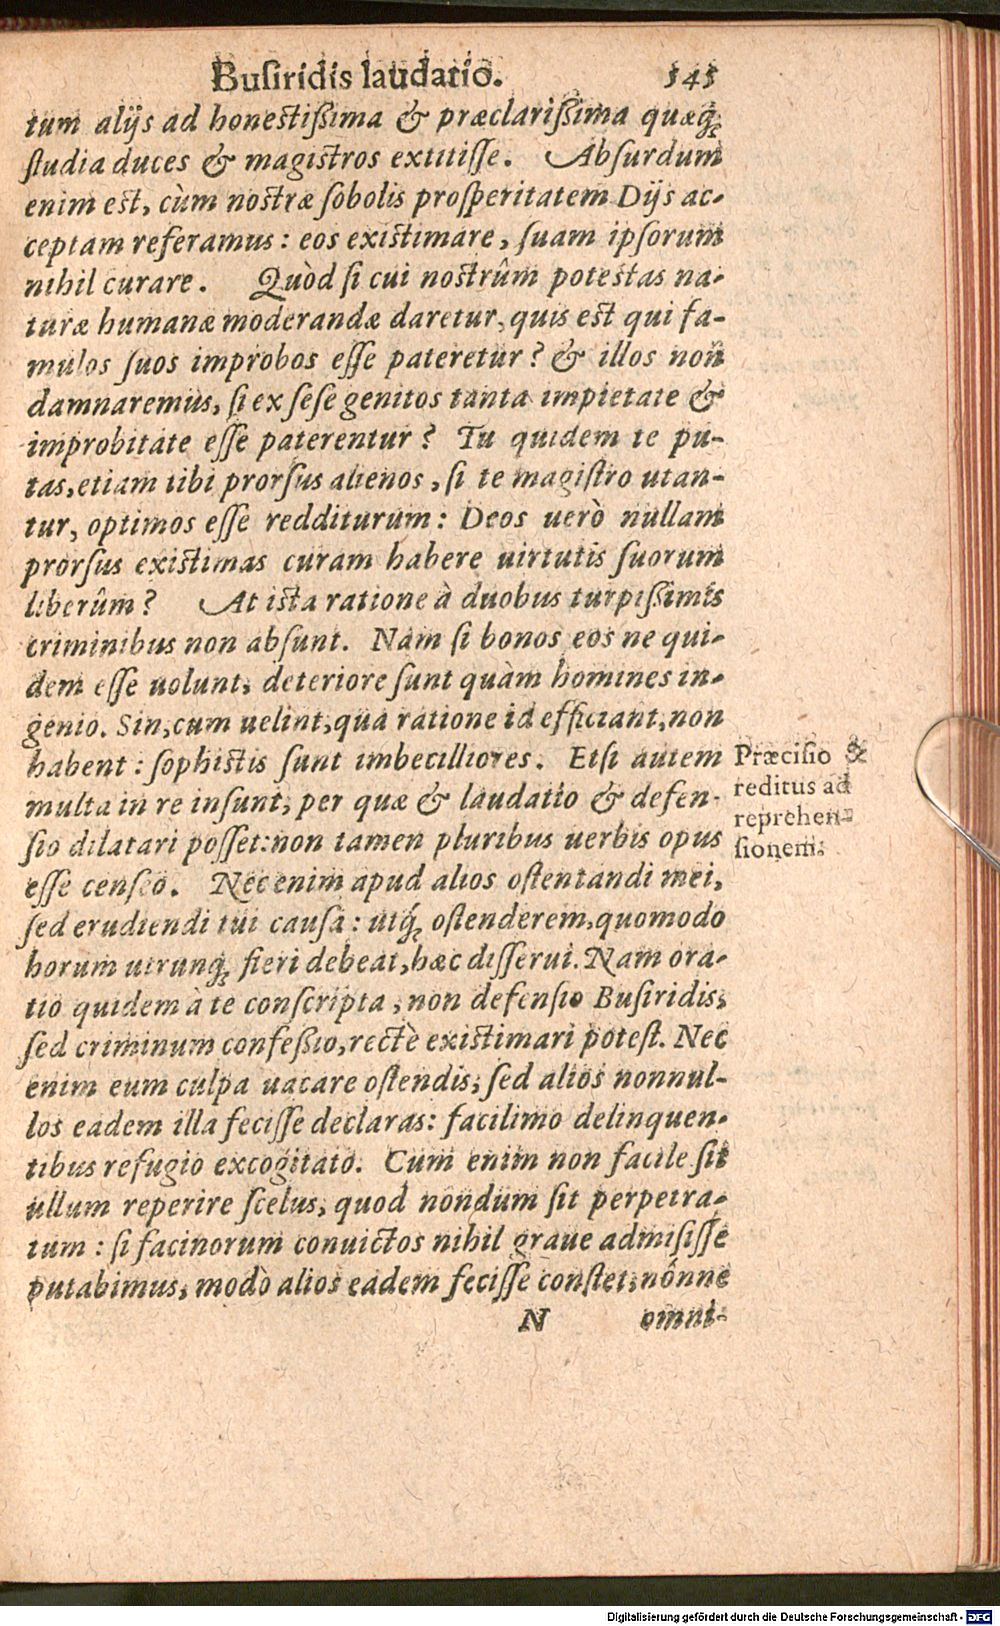 Buſiridis laudatio. 545
tum alijs ad honeſtiſsima & præclariſsima quæq́;
ſtudia duces & magiſtros extitiſſe. Abſurdum
enim eſt, cùm noſtræ ſobolis proſperitatem Dijs ac-
ceptam referamus: eos exiſtimare, ſuam ipſorum
nihil curare. Quòd ſi cui noſtrûm poteſtas na-
turæ humanæ moderandæ daretur, quis eſt qui fa-
mulos ſuos improbos eſſe pateretur? & illos non
damnaremus, ſi ex ſeſe genitos tanta impietate &
improbitate eſſe paterentur? Tu quidem te pu-
tas, etiam tibi prorſus alienos, ſi te magiſtro utan-
tur, optimos eſſe redditurum: Deos uerò nullam
prorſus exiſtimas curam habere uirtutis ſuorum
liberûm? At iſta ratione à duobus turpiſsimis
criminibus non abſunt. Nam ſi bonos eos ne qui-
dem eſſe uolunt, deteriore ſunt quàm homines in-
genio. Sin, cum uelint, qua ratione id efficiant, non
habent: ſophiſtis ſunt imbecilliores. Etſi autem
multa in re inſunt, per quæ & laudatio & defen-
ſio dilatari poſſet: non tamen pluribus uerbis opus
eſſe cenſeo. Nec enim apud alios oſtentandi mei,
ſed erudiendi tui cauſa: utq́; oſtenderem, quomodo
horum utrunq; fieri debeat, hæc diſſerui. Nam ora-
tio quidem à te conſcripta, non defenſio Buſiridis,
ſed criminum confeſsio, rectè exiſtimari poteſt. Nec
enim eum culpa uacare oſtendis, ſed alios nonnul-
los eadem illa feciſſe declaras: facilimo delinquen-
tibus refugio excogitato. Cum enim non facile ſit
ullum reperire ſcelus, quod nondum ſit perpetra-
tum: ſi facinorum conuictos nihil graue admiſiſſe
putabimus, modò alios eadem feciſſe conſtet, nónne
N omni-
Præciſio &
reditus ad
reprehen-
ſionem.
Digitalisierung gefördert durch die Deutsche Forschungsgemeinschaft - DFG